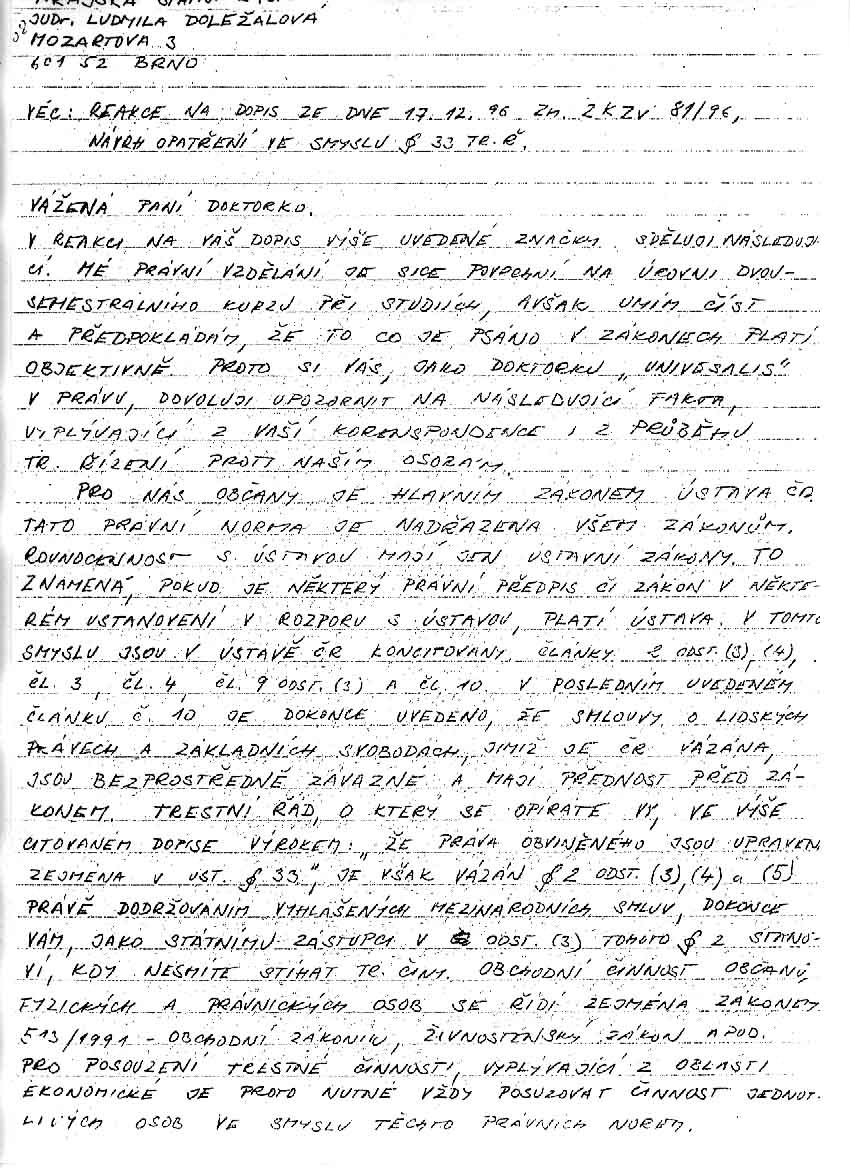 JUDr. LUDMILA DOLEŽALOVÁ
MOZARTOVA 3
601 52 BRNO
VĚC: REAKCE NA DOPIS ZE DNE 17.12.96 ZN. 2 KZV 81/96,
NÁVRH OPATŘENÍ VE SMYSLU § 33 TR.Ř.
VÁŽENÁ PANÍ DOKTORKO.
V REAKCI NA VÁŠ DOPIS VÝŠE UVEDENÉ ZNAČKY SDĚLUJI NÁSLEDUJÍ
CÍ. MÉ PRÁVNÍ VZDĚLÁNÍ JE SICE POVRCHNÍ NA ÚROVNI DVOU-
SEMESTRÁLNÍHO KURZU PŘI STUDIÍCH, AVŠAK UMÍM ČÍST
A PŘEDPOKLÁDÁM, ŽE TO CO JE PSÁNO V ZÁKONECH PLATÍ
OBJEKTIVNĚ. PROTO SI VÁS, JAKO DOKTORKU „UNIVESALIS"
V PRÁVU, DOVOLUJI UPOZORNIT NA NÁSLEDUJÍCÍ FAKTA,
VYPLÝVAJÍCÍ Z VAŠÍ KORENSPONDENCE I Z PRŮBĚHU
TR. ŘÍZENÍ PROTI NAŠÍM OSOBÁM.
PRO NÁS OBČANY JE HLAVNÍM ZÁKONEM ÚSTAVA ČR
TATO PRÁVNÍ NORMA JE NADŘAZENA VŠEM ZÁKONŮM.
ROVNOCENNOST S ÚSTAVOU MAJÍ JEN ÚSTAVNÍ ZÁKONY. TO
ZNAMENÁ, POKUD JE NĚKTERÝ PRÁVNÍ PŘEDPIS ČI ZÁKON V NĚKTE-
RÉM USTANOVENÍ V ROZPORU S ÚSTAVOU, PLATÍ ÚSTAVA. V TOMTO
SMYSLU JSOU V ÚSTAVĚ ČR KONCITOVÁNY ČLÁNKY 2 ODST. (3), (4),
ČL. 3, ČL. 4, ČL. 9 ODST. (3) A ČL. 10. V POSLEDNÍM UVEDENÉM
ČLÁNKU Č. 10 JE DOKONCE UVEDENO, ŽE SMLOUVY O LIDSKÝCH
PRÁVECH A ZÁKLADNÍCH SVOBODÁCH, JIMIŽ JE ČR VÁZÁNA,
JSOU BEZPROSTŘEDNĚ ZÁVAZNÉ A MAJÍ PŘEDNOST PŘED ZÁ-
KONEM. TRESTNÍ ŘÁD, O KTERÝ SE OPÍRÁTE VY, VE VÝŠE
CITOVANÉM DOPISE VÝROKEM: „ŽE PRÁVA OBVINĚNÉHO JSOU UPRAVEN
ZEJMÉNA V UST. § 33", JE VŠAK VÁZÁN § 2 ODST. (3), (4) a (5)
PRÁVĚ DODRŽOVÁNÍM VYHLÁŠENÝCH MEZINÁRODNÍCH SMLUV, DOKONCE
VÁM, JAKO STÁTNÍMU ZÁSTUPCI V ODST. (3) TOHOTO § 2 STANO-
VÍ, KDY NESMÍTE STÍHAT TR. ČINY. OBCHODNÍ ČINNOST OBČANŮ,
FYZICKÝCH A PRÁVNICKÝCH OSOB SE ŘÍDÍ ZEJMÉNA ZÁKONEM
513/1991 - OBCHODNÍ ZÁKONÍK, ŽIVNOSTENSKÝ ZÁKON APOD.
PRO POSOUZENÍ TRESTNÉ ČINNOSTI, VYPLÝVAJÍCÍ Z OBLASTI
EKONOMICKÉ JE PROTO NUTNÉ VŽDY POSUZOVAT ČINNOST JEDNOT-
LIVÝCH OSOB VE SMYSLU TĚCHTO PRÁVNÍCH NOREM.